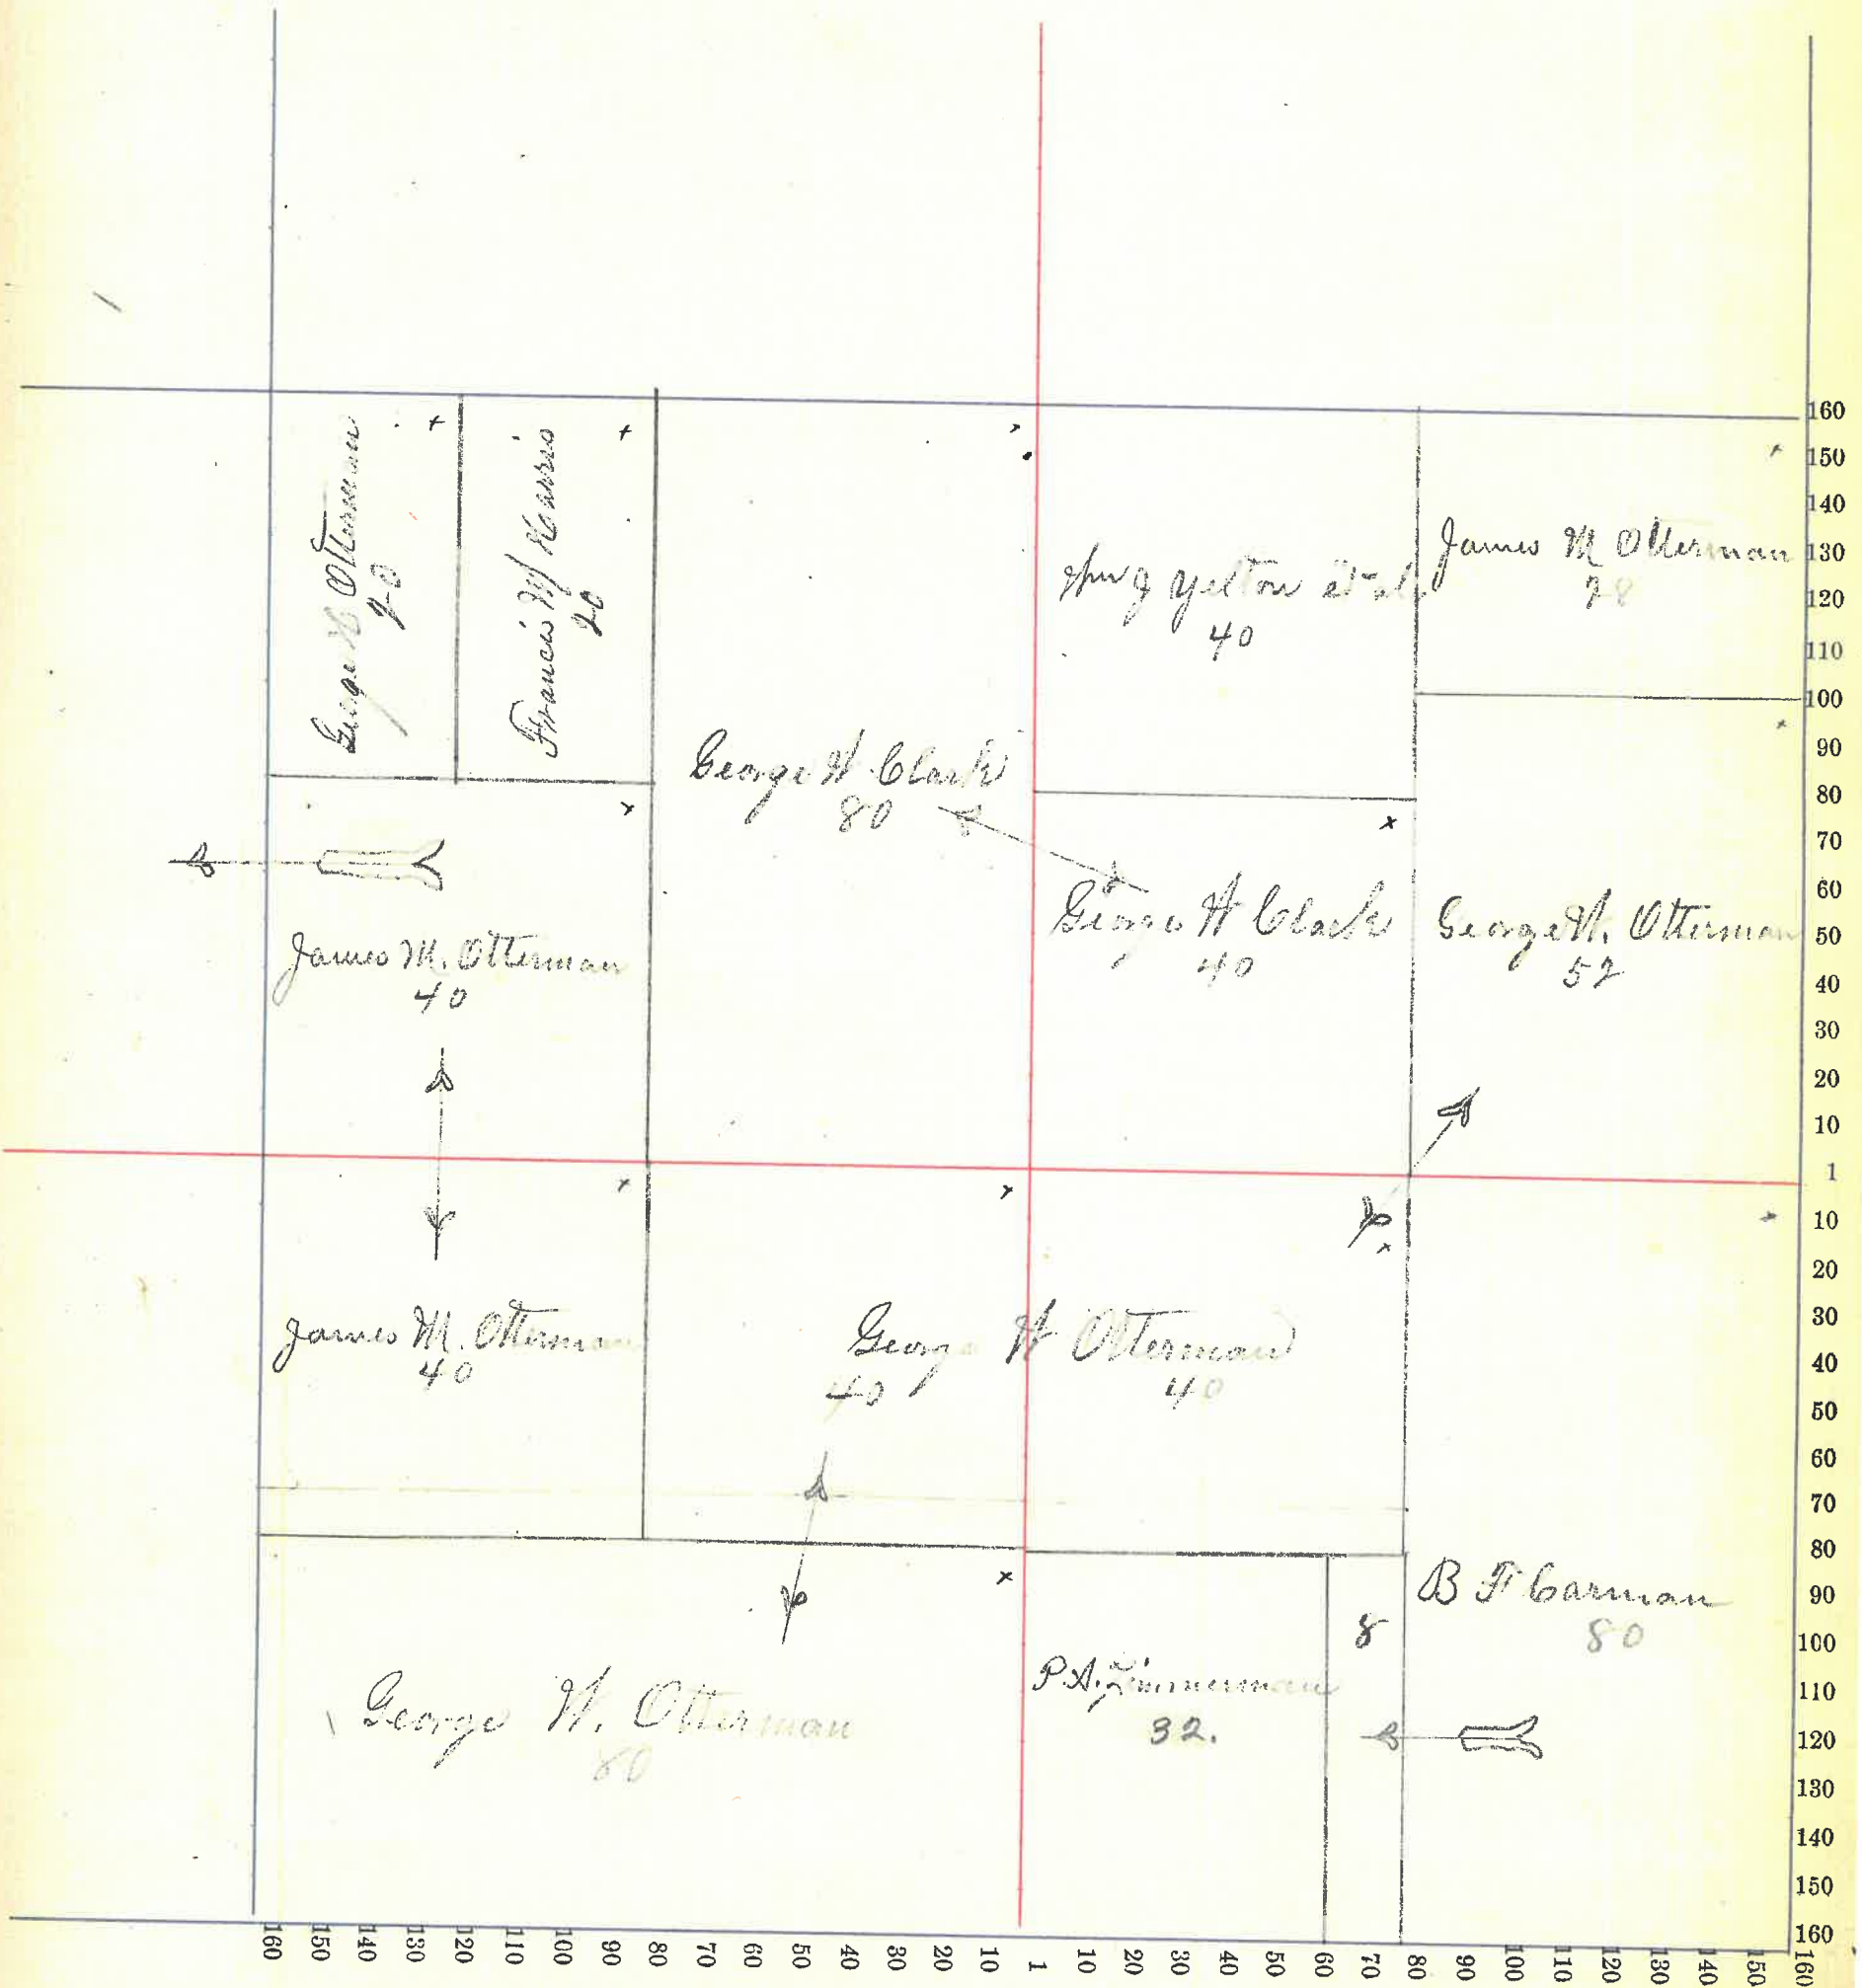 George W Otterman
20
Francis M Harris
20
George W Clark
80
Yelton et al
40
James M Otterman
28
George W Clark
40
George W. Otterman
52
James M. Otterman
40
James M. Otterman
40
George W Otterman
40
40
George W. Otterman
80
P. A. Zimmerman
32.
8
B F Carman
80
160
150
140
130
120
110
100
90
80
70
60
50
40
30
20
10
1
10
20
30
40
50
60
70
80
90
100
110
120
130
140
150
160
160
150
140
130
120
110
100
90
80
70
60
50
40
30
20
10
1
10
20
30
40
50
60
70
80
90
100
110
120
130
140
150
160